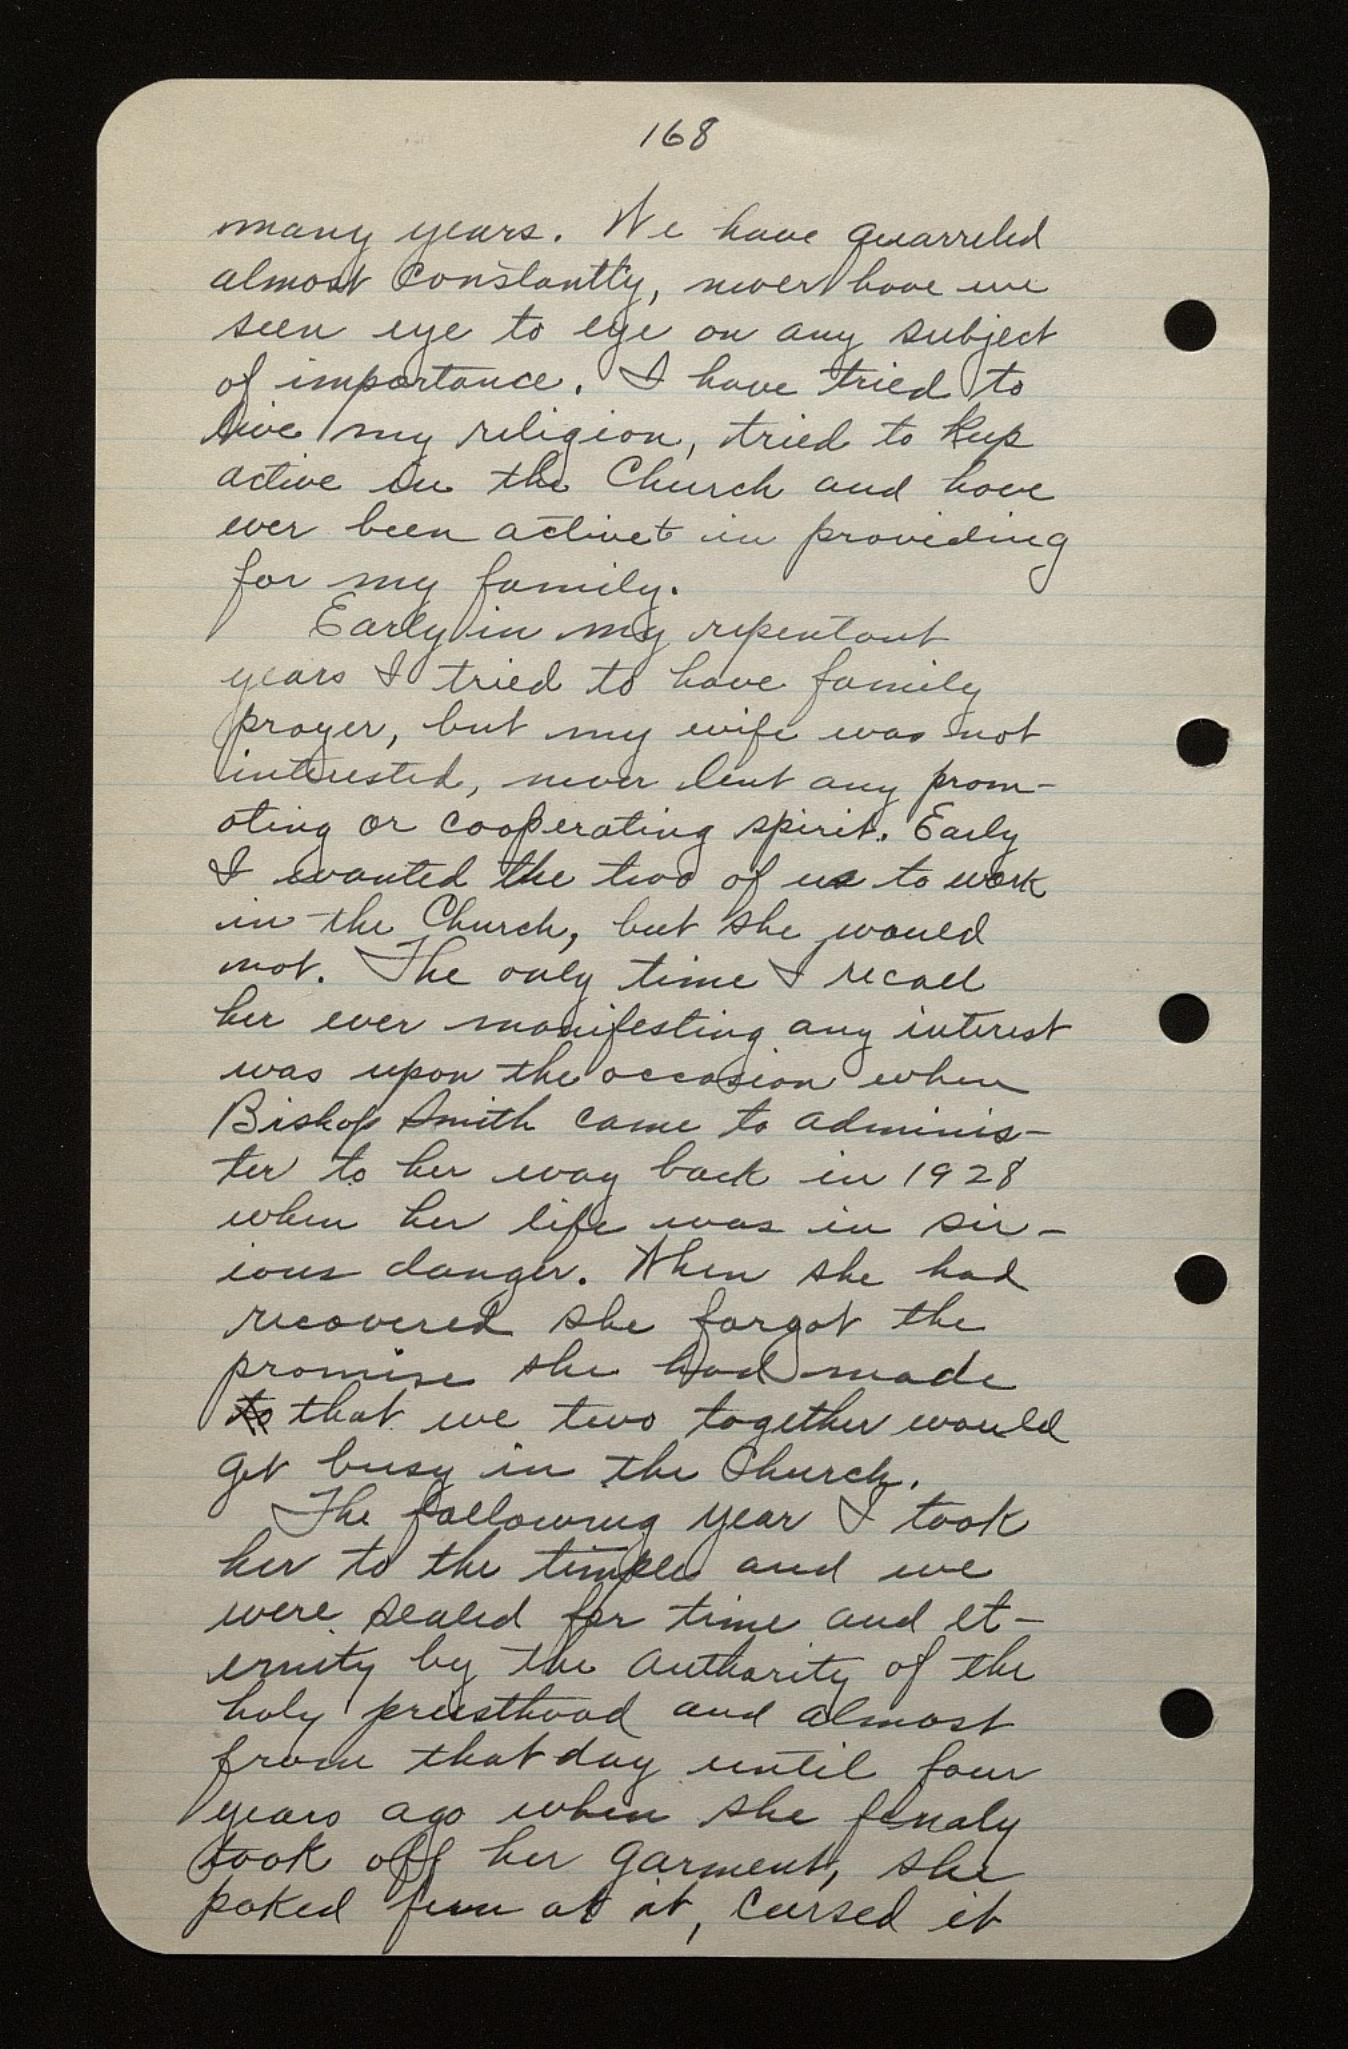 168
many years. We have quarreled
almost constantly, never have we
seen eye to eye on any subject
of importance. I have tried to
live my religion, tried to keep
active in the Church and have
ever been active in providing
for my family.
Early in my repentant
years I tried to have family
prayer, but my wife was not
interested, never lent any prom-
oting or cooperating spirit. Early
I wanted the two of us to work
in the Church, but she would
not. The only time I recall
her ever manifesting any interest
was upon the occasion when
Bishop Smith came to adminis-
ter to her way back in 1928
when her life was in ser-
ious danger. When she had
recovered she forgot the
promise she had made
that we two together would
get busy in the Church.
The following year I took
her to the temple and we
were sealed for time and et-
ernity by the authority of the
holy priesthood and almost
from that day until four
years ago when she finaly
took off her garment, she
poked fun at it, cursed it